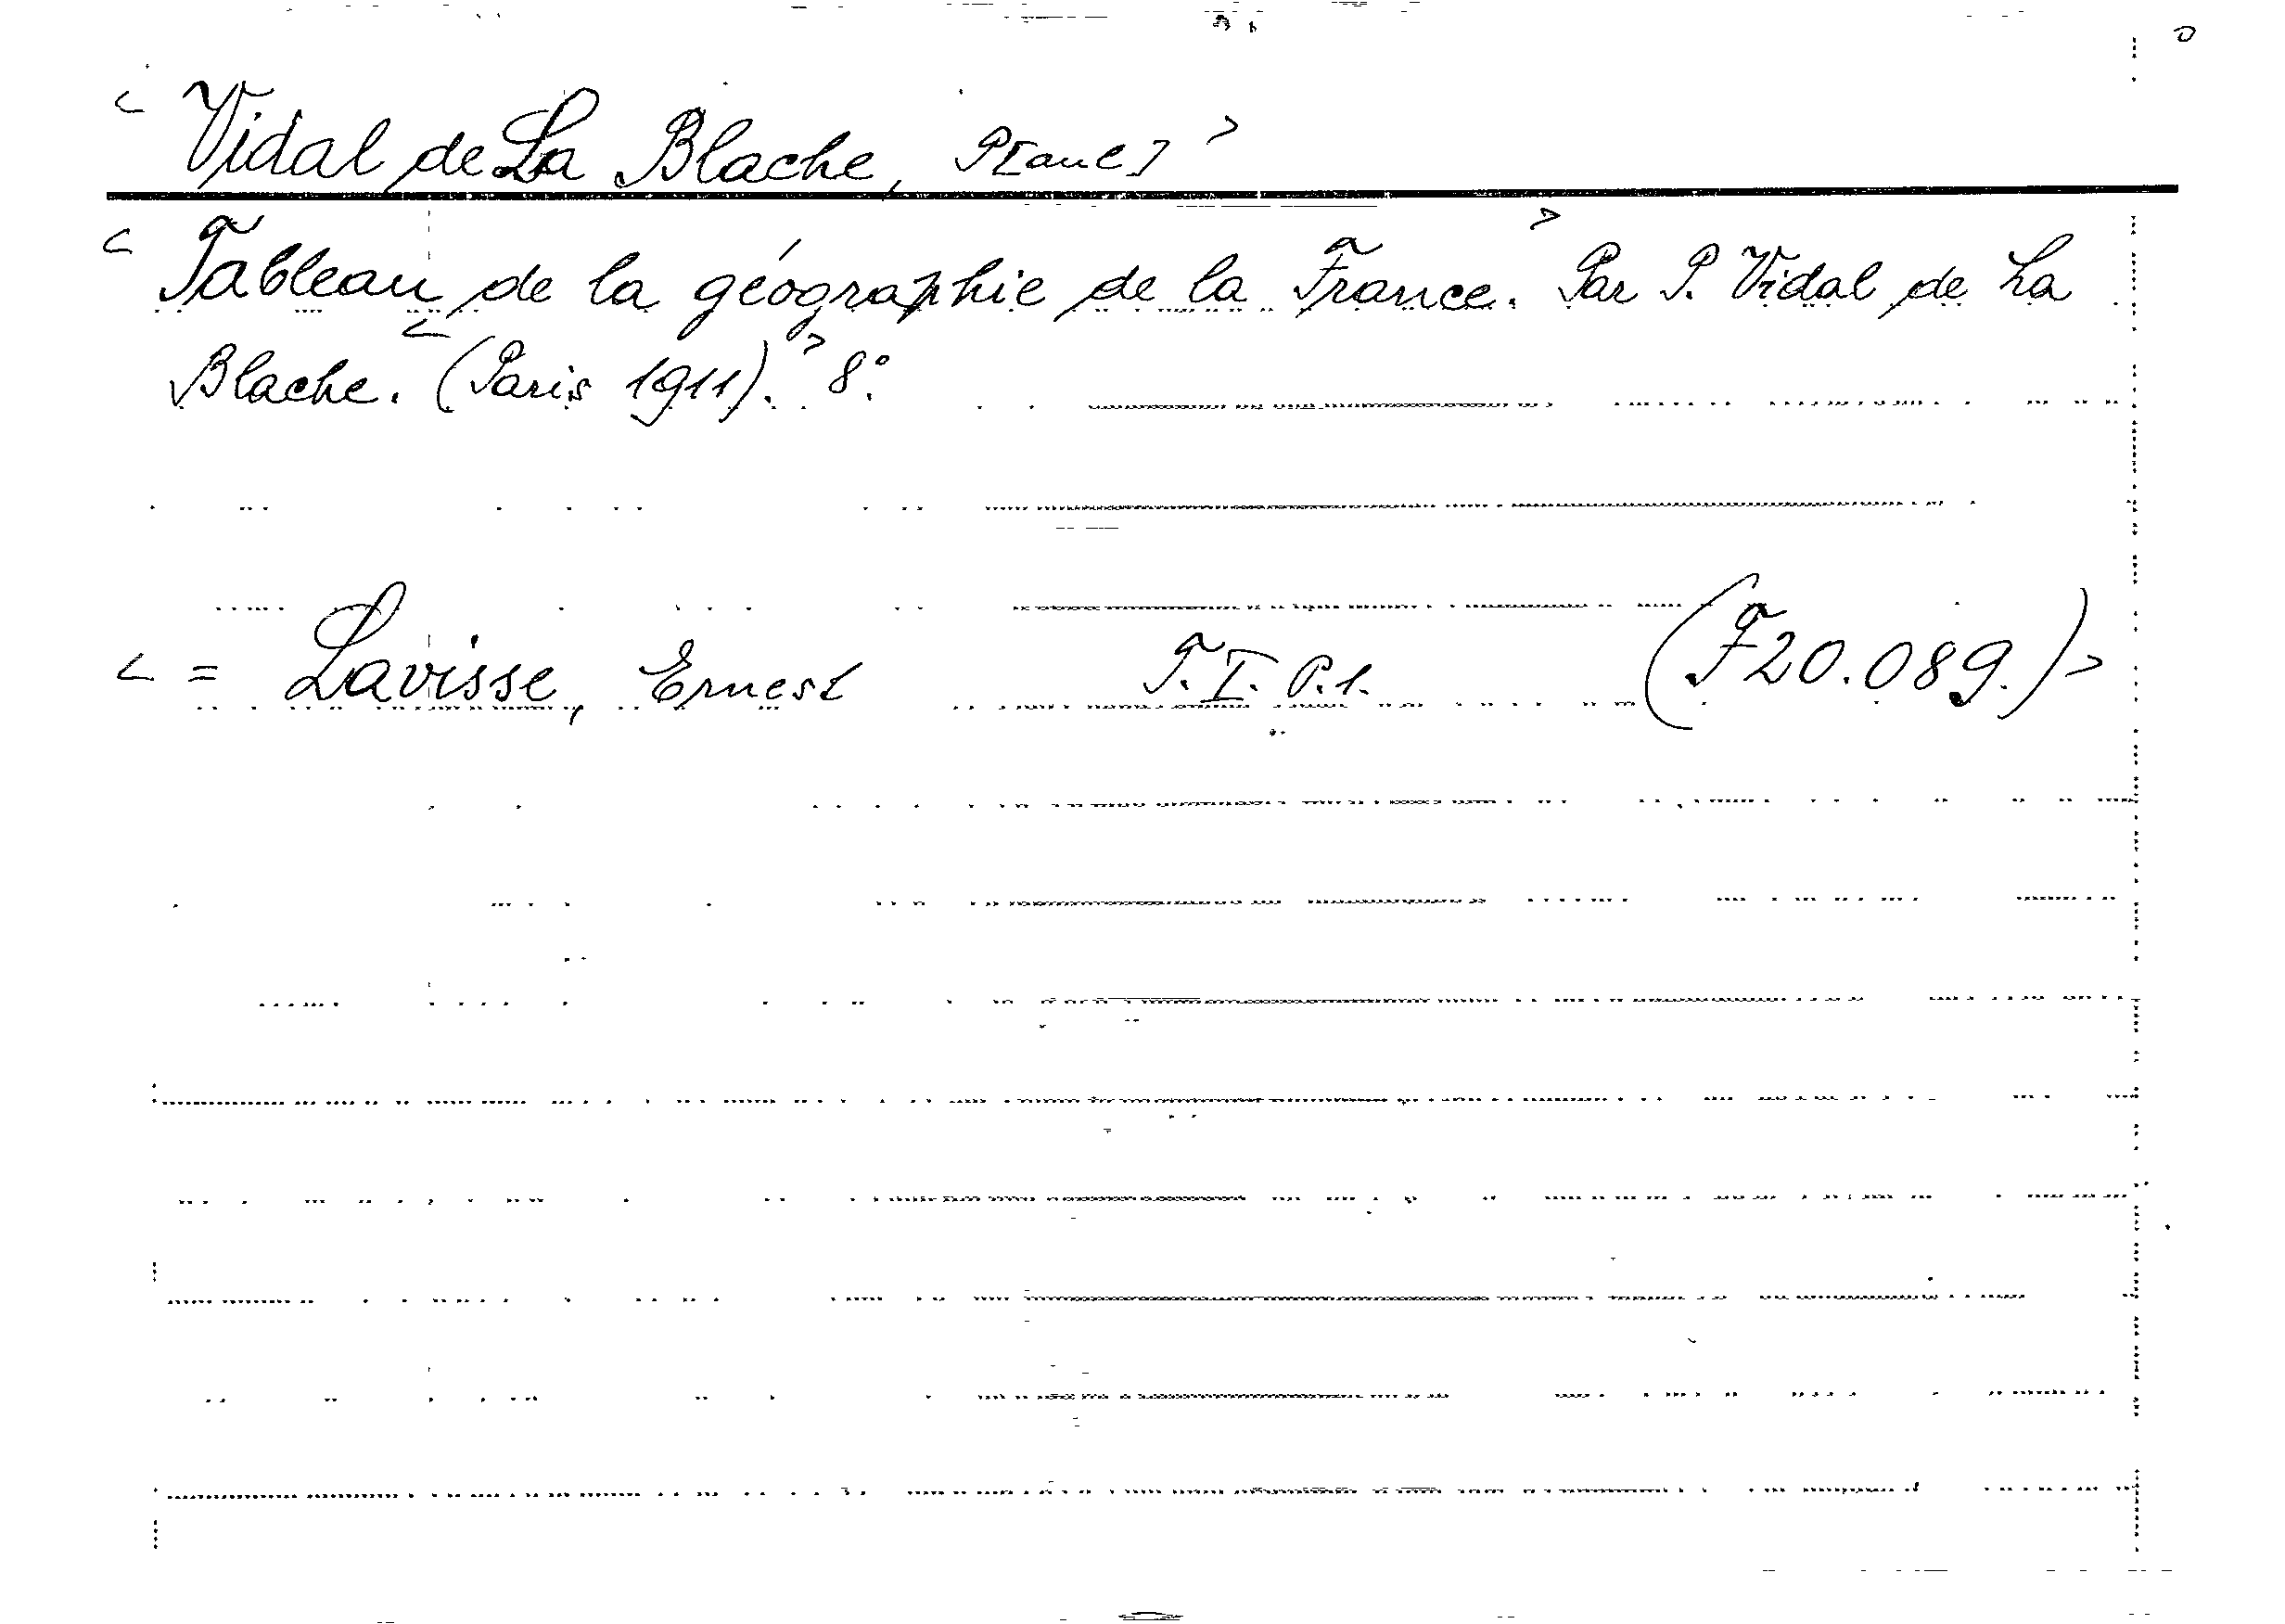 < Vidal de La Blache, P[aul] >
< Tableau de la géographie de la France. > Par P. Vidal de La
Blache. < (Paris 1911). > 8°.
< = Lavisse, Ernest T. I. P. 1. (F20.089.) >